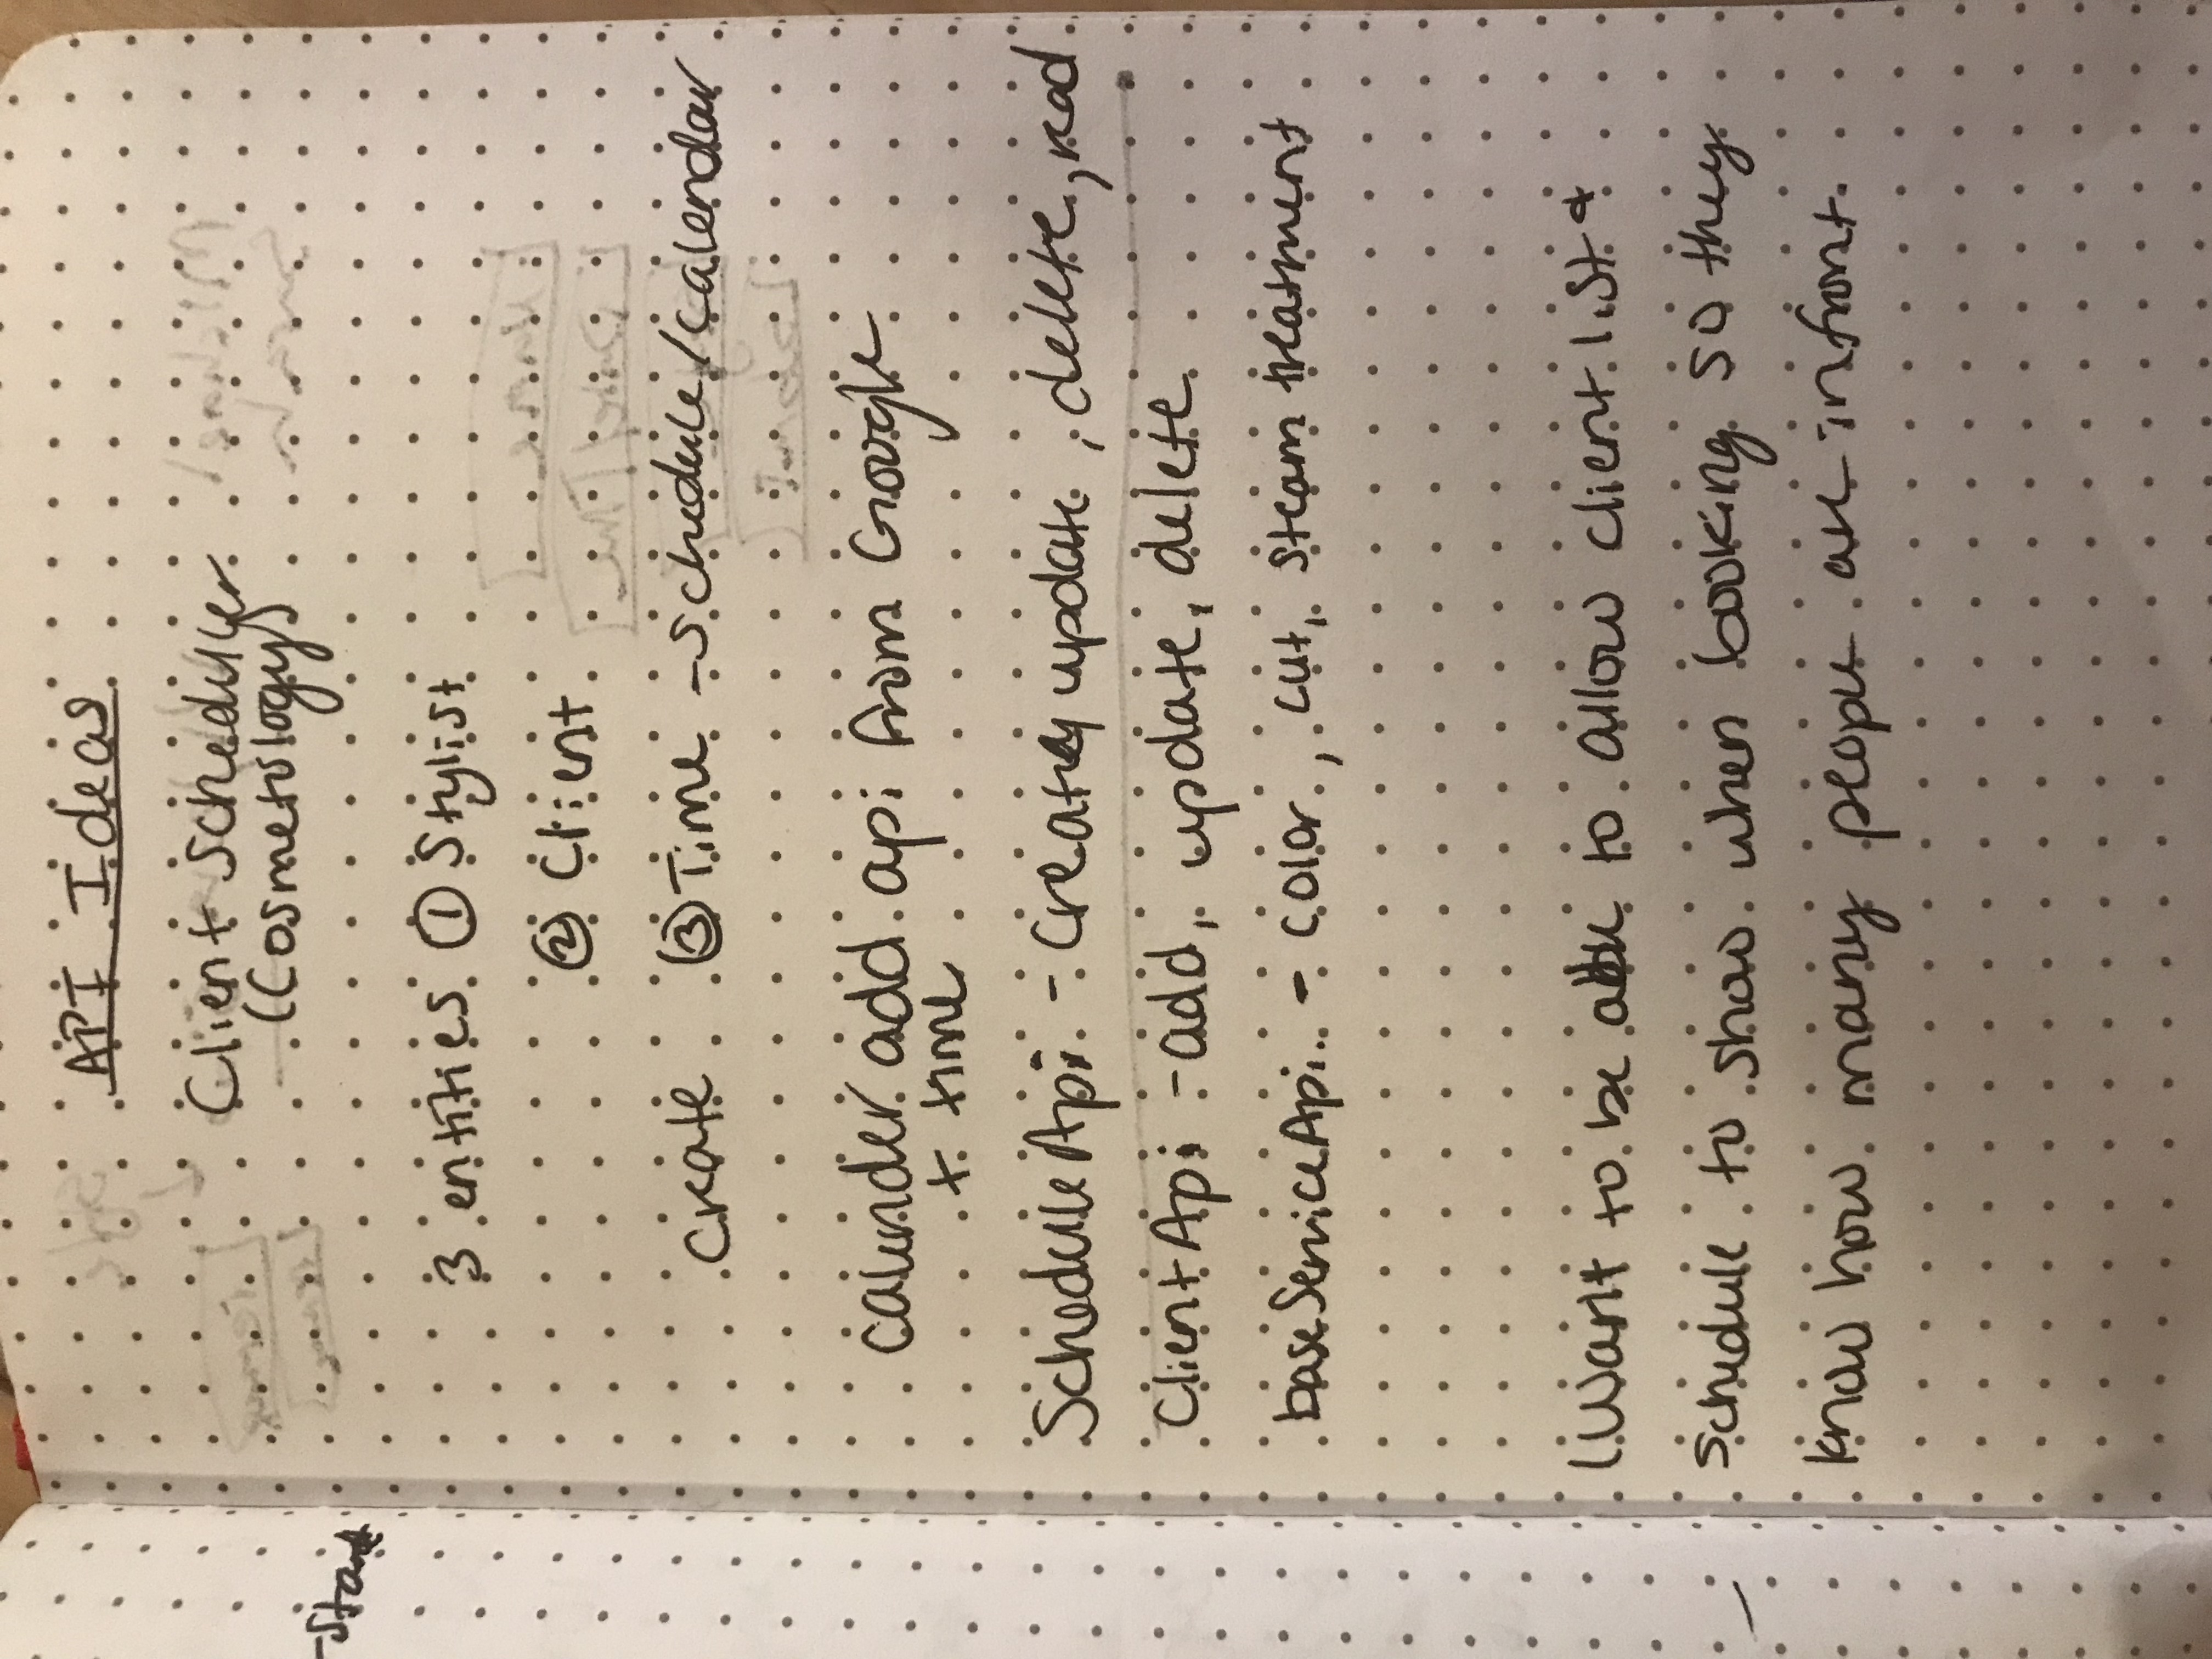 API Ideas
Client Scheduler
(Cosmetology)
3 entities ① Stylist
② Client
create ③ Time - Schedule/calendar
calender add api from Google
+ time
ScheduleApi - Create, update, delete, read
ClientApi - add, update, delete
baseServiceApi - color, cut, steam treatment
I Want to be able to allow client list &
schedule to show when booking so they
know how many people are infront.